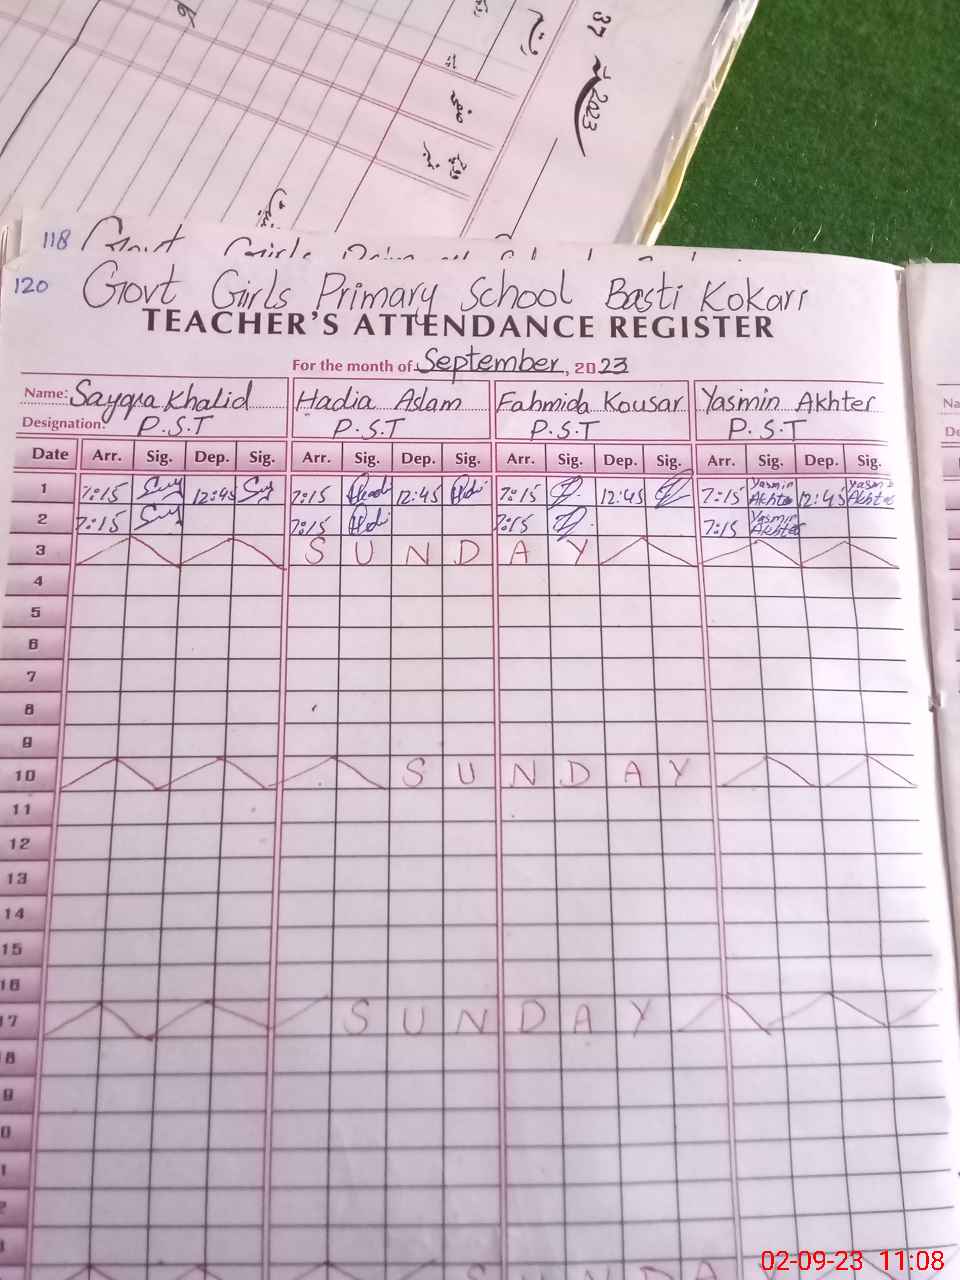 37
2023
118 Govt Girls
120 Govt Girls Primary School Basti Kokari
TEACHER'S ATTENDANCE REGISTER
For the month of September, 2023
Name: Sayqua Khalid Hadia Aslam Fahmida Kousar Yasmin Akhter
Designation: P.S.T P.S.T P.S.T P.S.T
Date Arr. Sig. Dep. Sig. Arr. Sig. Dep. Sig. Arr. Sig. Dep. Sig. Arr. Sig. Dep. Sig.
1 7:15 12:45 7:15 12:45 7:15 12:45 7:15 Yasmin Akhter 12:45 Yasmin Akhter
2 7:15 7:15 7:15 7:15 Yasmin Akhter
3 SUNDAY
4
5
6
7
8
9
10 SUNDAY
11
12
13
14
15
16
17 SUNDAY
18
9
0
1
2
3
SUNDA
Na
De
02-09-23 11:08